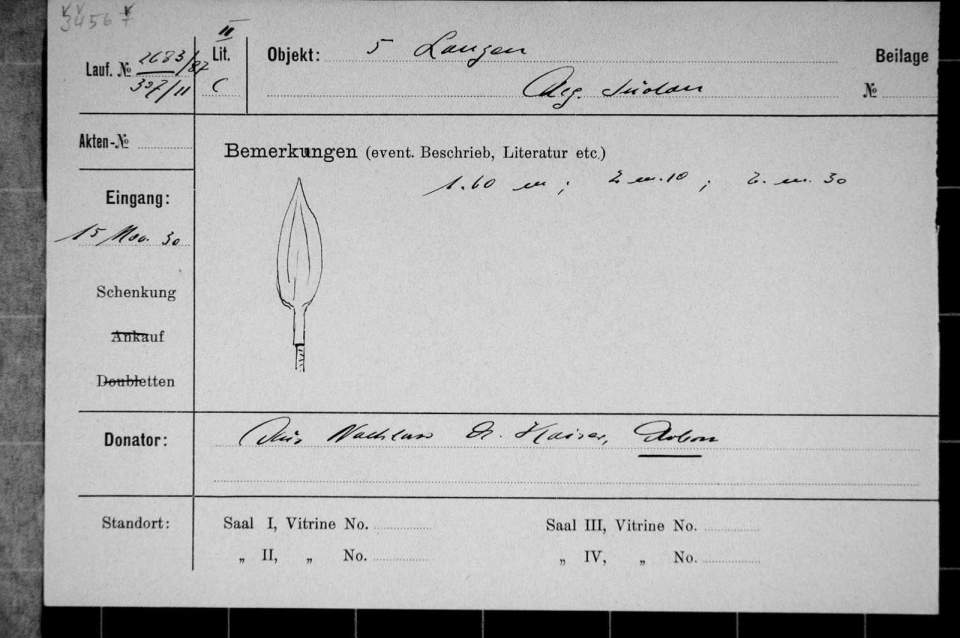 3456 7
Lauf. № 2683/87
307/11
II
Lit.
C
Objekt: 5 Lanzen
Aeg. Sudan
Beilage
№
Akten-№
Eingang:
15 Nov. 30
Schenkung
Ankauf
Doubletten
Bemerkungen (event. Beschrieb, Literatur etc.)
1.60 m ; 2 m. 10 ; 2. m. 30
Donator: Aus Nachlass Dr. Kaiser, Arbon
Standort:
Saal I, Vitrine No.
„ II, „ No.
Saal III, Vitrine No.
„ IV, „ No.